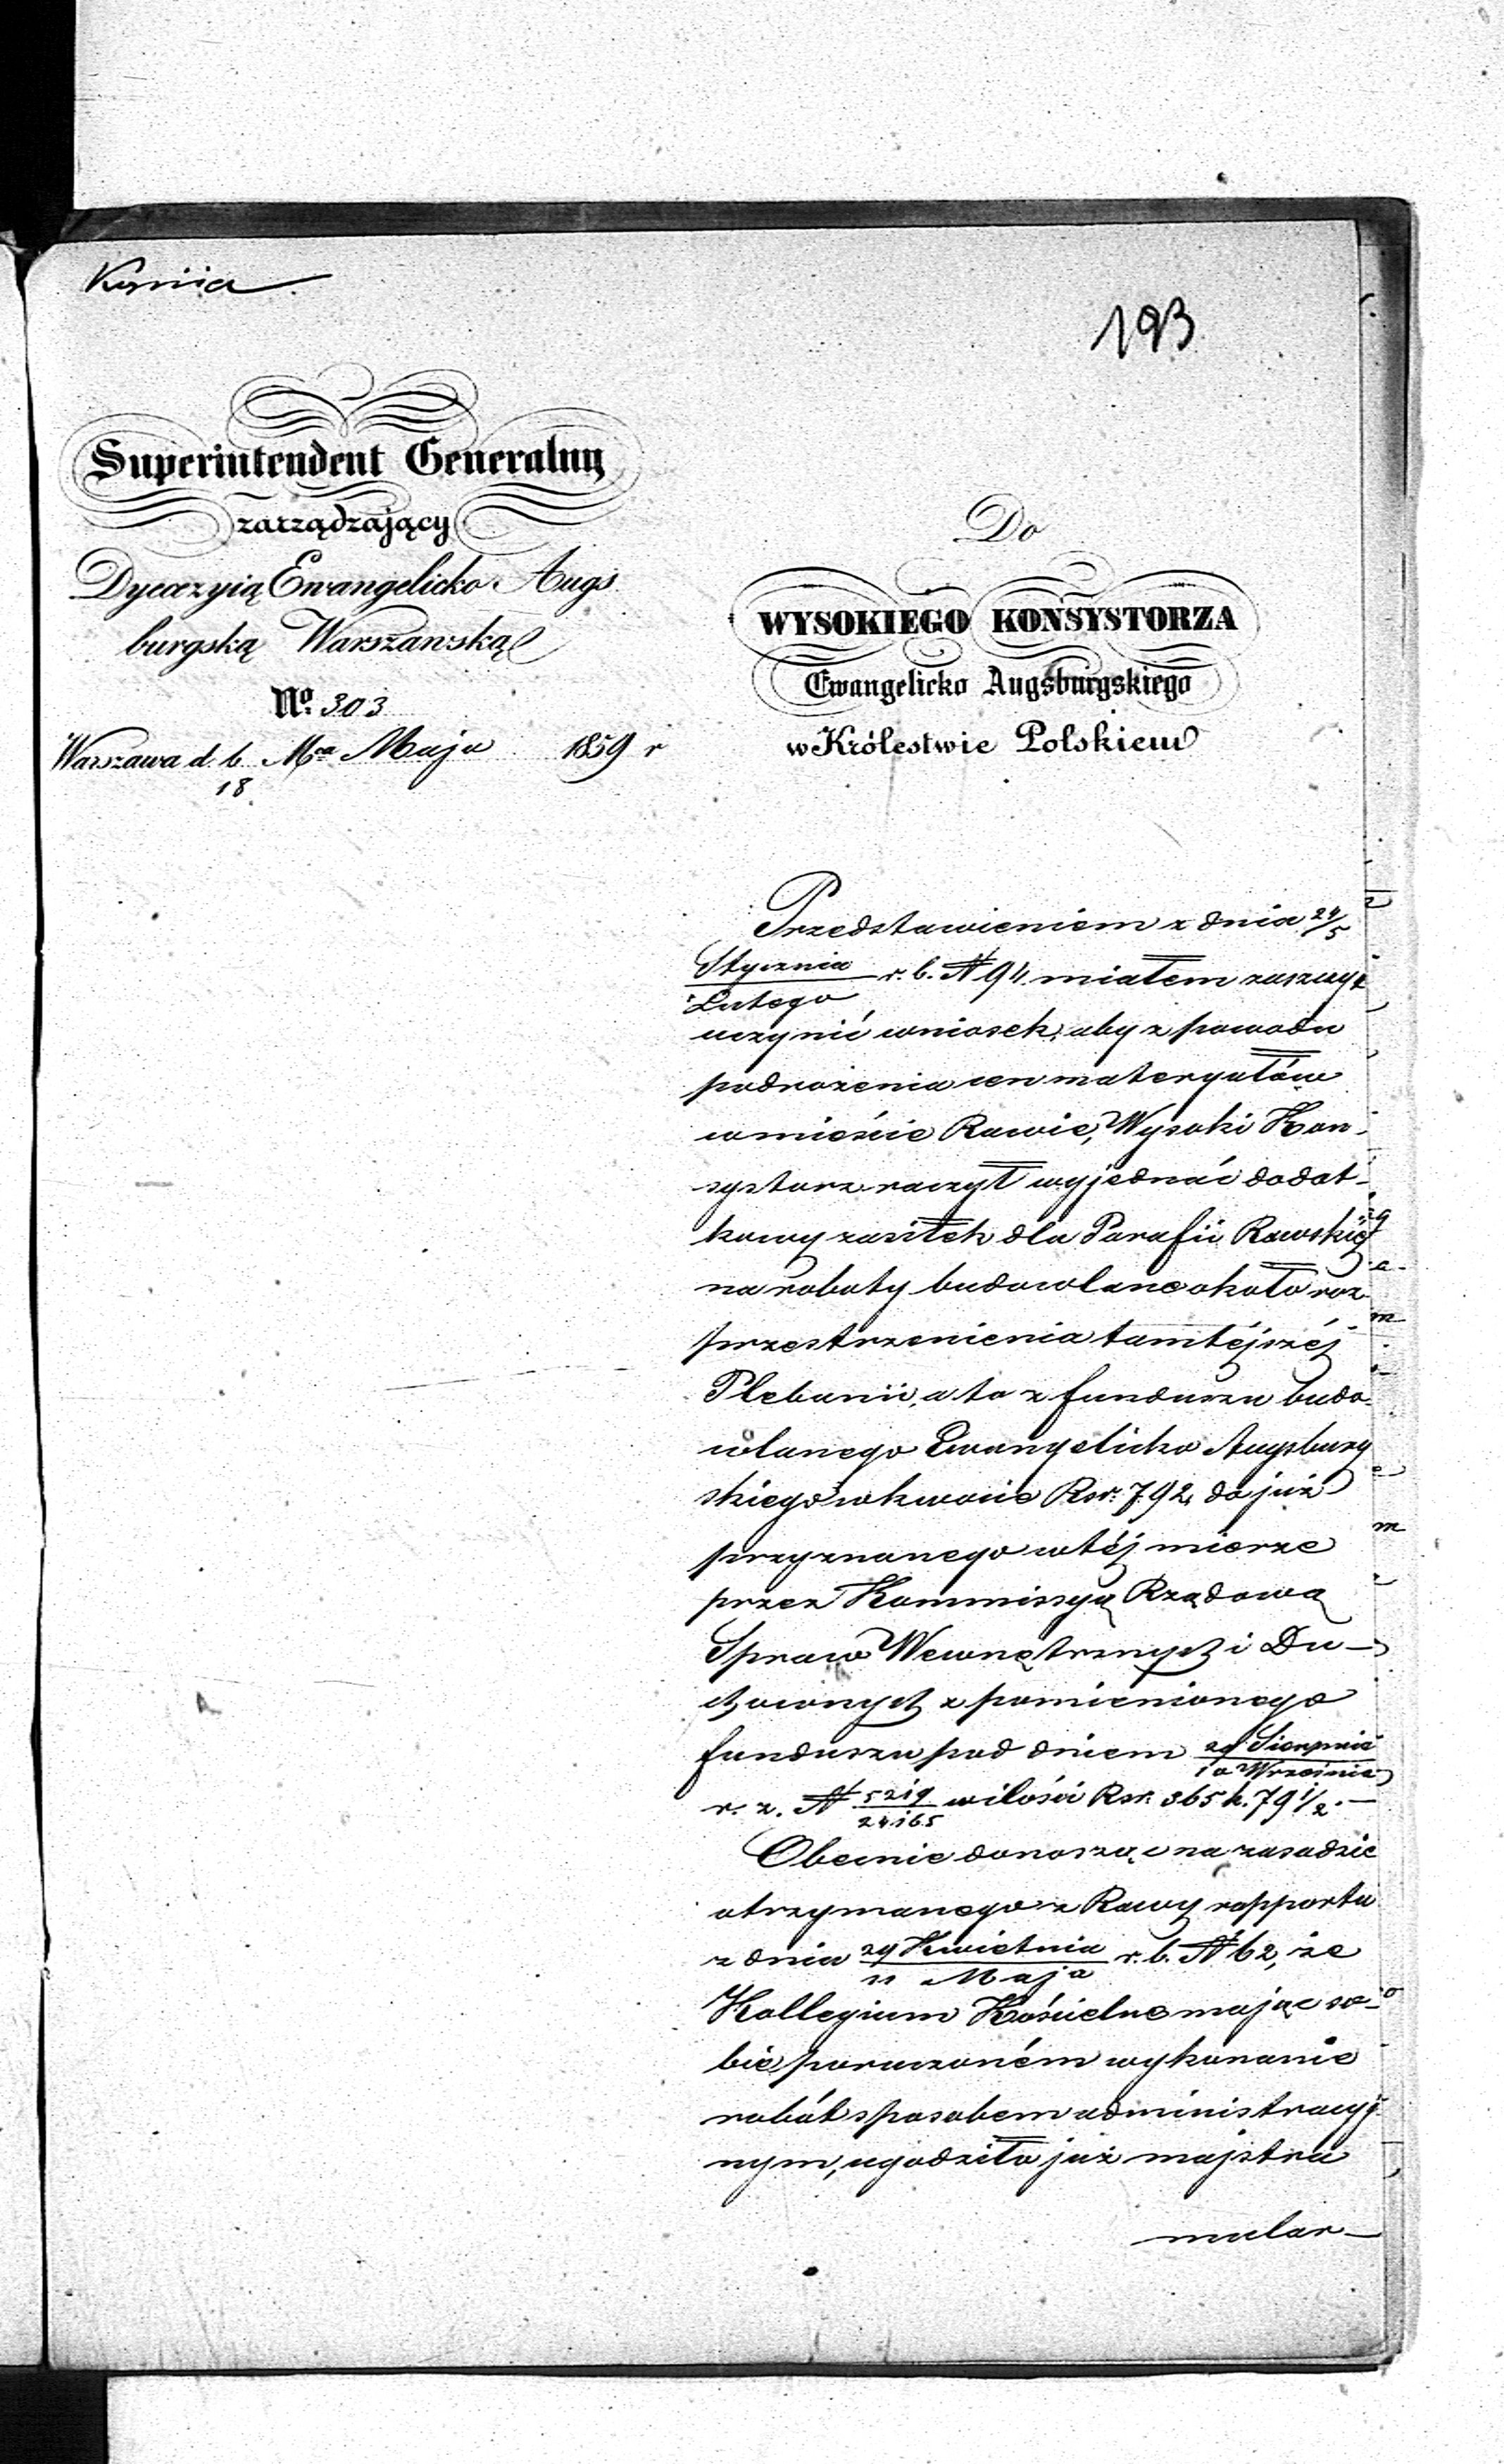 Kopiia
193
Superintendent Generalny
zarządzający
Dyecezyią Ewangelicko Augs
burgską Warszawską
No. 303
Warszawa d. 6 Mca Maja 1859 r
18
Do
WYSOKIEGO KONSYSTORZA
Ewangelicko Augsburgskiego
w Królestwie Polskiem
Przedstawieniem z dnia 24/5
Stycznia
Lutego r. b. N 94 miałem zaszczyt
uczynić wniosek, aby z powodu
podrożenia cen materyałów
w mieście Rawie, Wysoki Kon-
systorz raczył wyjednać dodat-
kowy zasiłek dla Parafii Rawskiéj
na roboty budowlane około roz-
przestrzenienia tamtéjszéj
Plebanii, a to z funduszu budo-
wlanego Ewangelicko Augsburg
skiego w kwocie Rsr. 792, do już
przyznanego w téj mierze
przez Kommissyą Rządową
Spraw Wewnętrznych i Du-
chownych z pomienionego
funduszu pod dniem 29 Sierpnia
10 Września
r. z. N 5219/24165 w ilości Rsr. 365 k. 79 1/2. —
Obecnie donosząc na zasadzie
otrzymanego z Rawy rapportu
z dnia 29 Kwietnia
11 Maja r. b. N 62, że
Kollegium Kościelne mając so-
bie poruczoném wykonanie
robót sposobem administracyj
nym, ugodziło już majstra
mular—